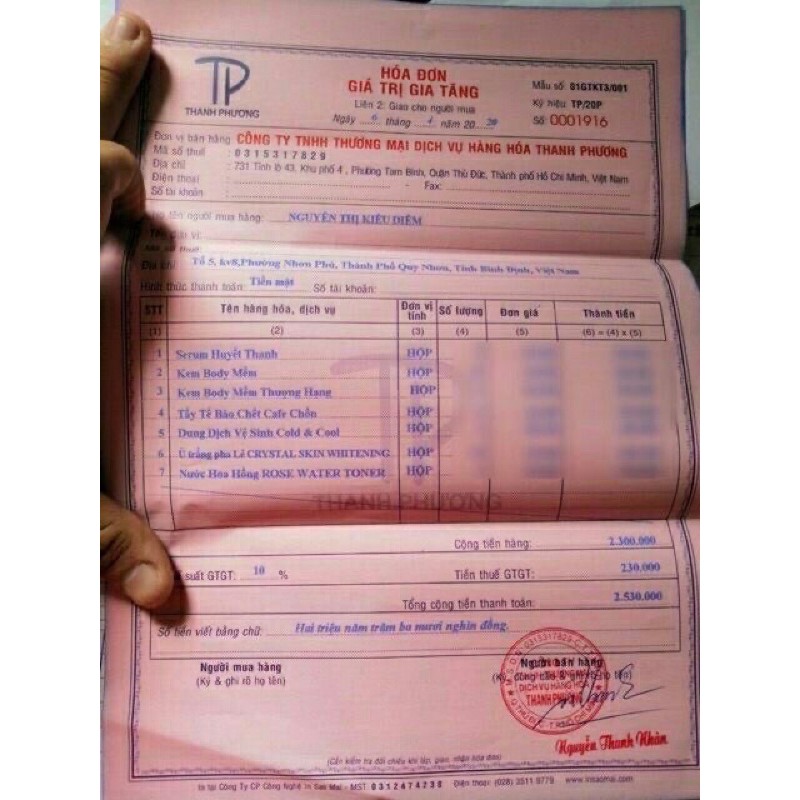 TP
THANH PHƯƠNG
HÓA ĐƠN
GIÁ TRỊ GIA TĂNG
Liên 2: Giao cho người mua
Ngày 6 tháng 1 năm 2020
Mẫu số: 01GTKT3/001
Ký hiệu: TP/20P
Số: 0001916
Đơn vị bán hàng: CÔNG TY TNHH THƯƠNG MẠI DỊCH VỤ HÀNG HÓA THANH PHƯƠNG
Mã số thuế : 0315317829
Địa chỉ : 731 Tỉnh lộ 43, Khu phố 4 , Phường Tam Bình, Quận Thủ Đức, Thành phố Hồ Chí Minh, Việt Nam
Điện thoại : - Fax:
Số tài khoản :
Họ tên người mua hàng: NGUYỄN THỊ KIỀU DIỄM
Tên đơn vị:
Địa chỉ Tổ 5, kv8,Phường Nhơn Phú, Thành Phố Quy Nhơn, Tỉnh Bình Định, Việt Nam
Hình thức thanh toán: Tiền mặt Số tài khoản:
STT Tên hàng hóa, dịch vụ Đơn vị tính Số lượng Đơn giá Thành tiền
(1) (2) (3) (4) (5) (6) = (4) x (5)
1 Serum Huyết Thanh HỘP
2 Kem Body Mềm HỘP
3 Kem Body Mềm Thượng Hạng HỘP
4 Tẩy Tế Bào Chết Cafe Chồn HỘP
5 Dung Dịch Vệ Sinh Cold & Cool HỘP
6 Ủ trắng pha Lê CRYSTAL SKIN WHITENING HỘP
7 Nước Hoa Hồng ROSE WATER TONER HỘP
THANH PHƯƠNG
Cộng tiền hàng: 2.300.000
suất GTGT: 10 % Tiền thuế GTGT: 230.000
Tổng cộng tiền thanh toán: 2.530.000
Số tiền viết bằng chữ: Hai triệu năm trăm ba mươi nghìn đồng.
Người mua hàng
(Ký & ghi rõ họ tên)
Người bán hàng
(Ký, đóng dấu & ghi rõ họ tên)
M.S.D.N: 0315317829
DỊCH VỤ HÀNG HÓA
THANH PHƯƠNG
Nguyễn Thanh Nhân
(Cần kiểm tra đối chiếu khi lập, giao, nhận hóa đơn)
In tại Công Ty CP Công Nghệ In Sao Mai - MST: 0312474238 Điện thoại: (028) 3511 9779 www.insaomai.com